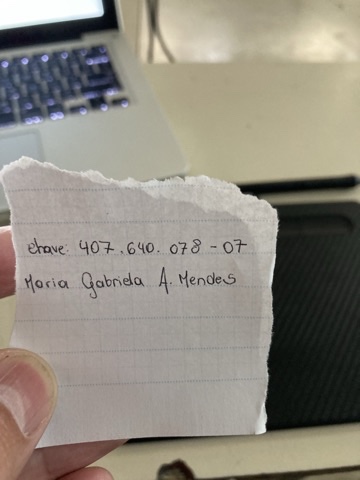 chave: 407.640.078-07
Maria Gabriela A. Mendes